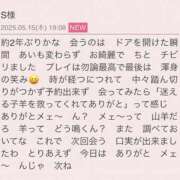 S様
2025.05.15(木) 19:08 NEW
約2年ぶりかな　会うのは　ドアを開けた瞬
間　あいも変わらず　お綺麗で　ちと　チビ
りました　プレイは勿論最高で最後は　渾身
の笑み😄　が　時が経つにつれて　中々踏ん切
りがつかず予約出来ず　会ってみたら「迷え
る子羊を救ってくれてありがと」って感じ
ありがとメェ〜　ん?　メェ〜　って山羊だ
ろ　羊って　どう鳴くん?　また　調べてお
いてな　これで　次回会う　口実が出来まし
たわ　とりあえず　今日は　ありがと　メェ
〜